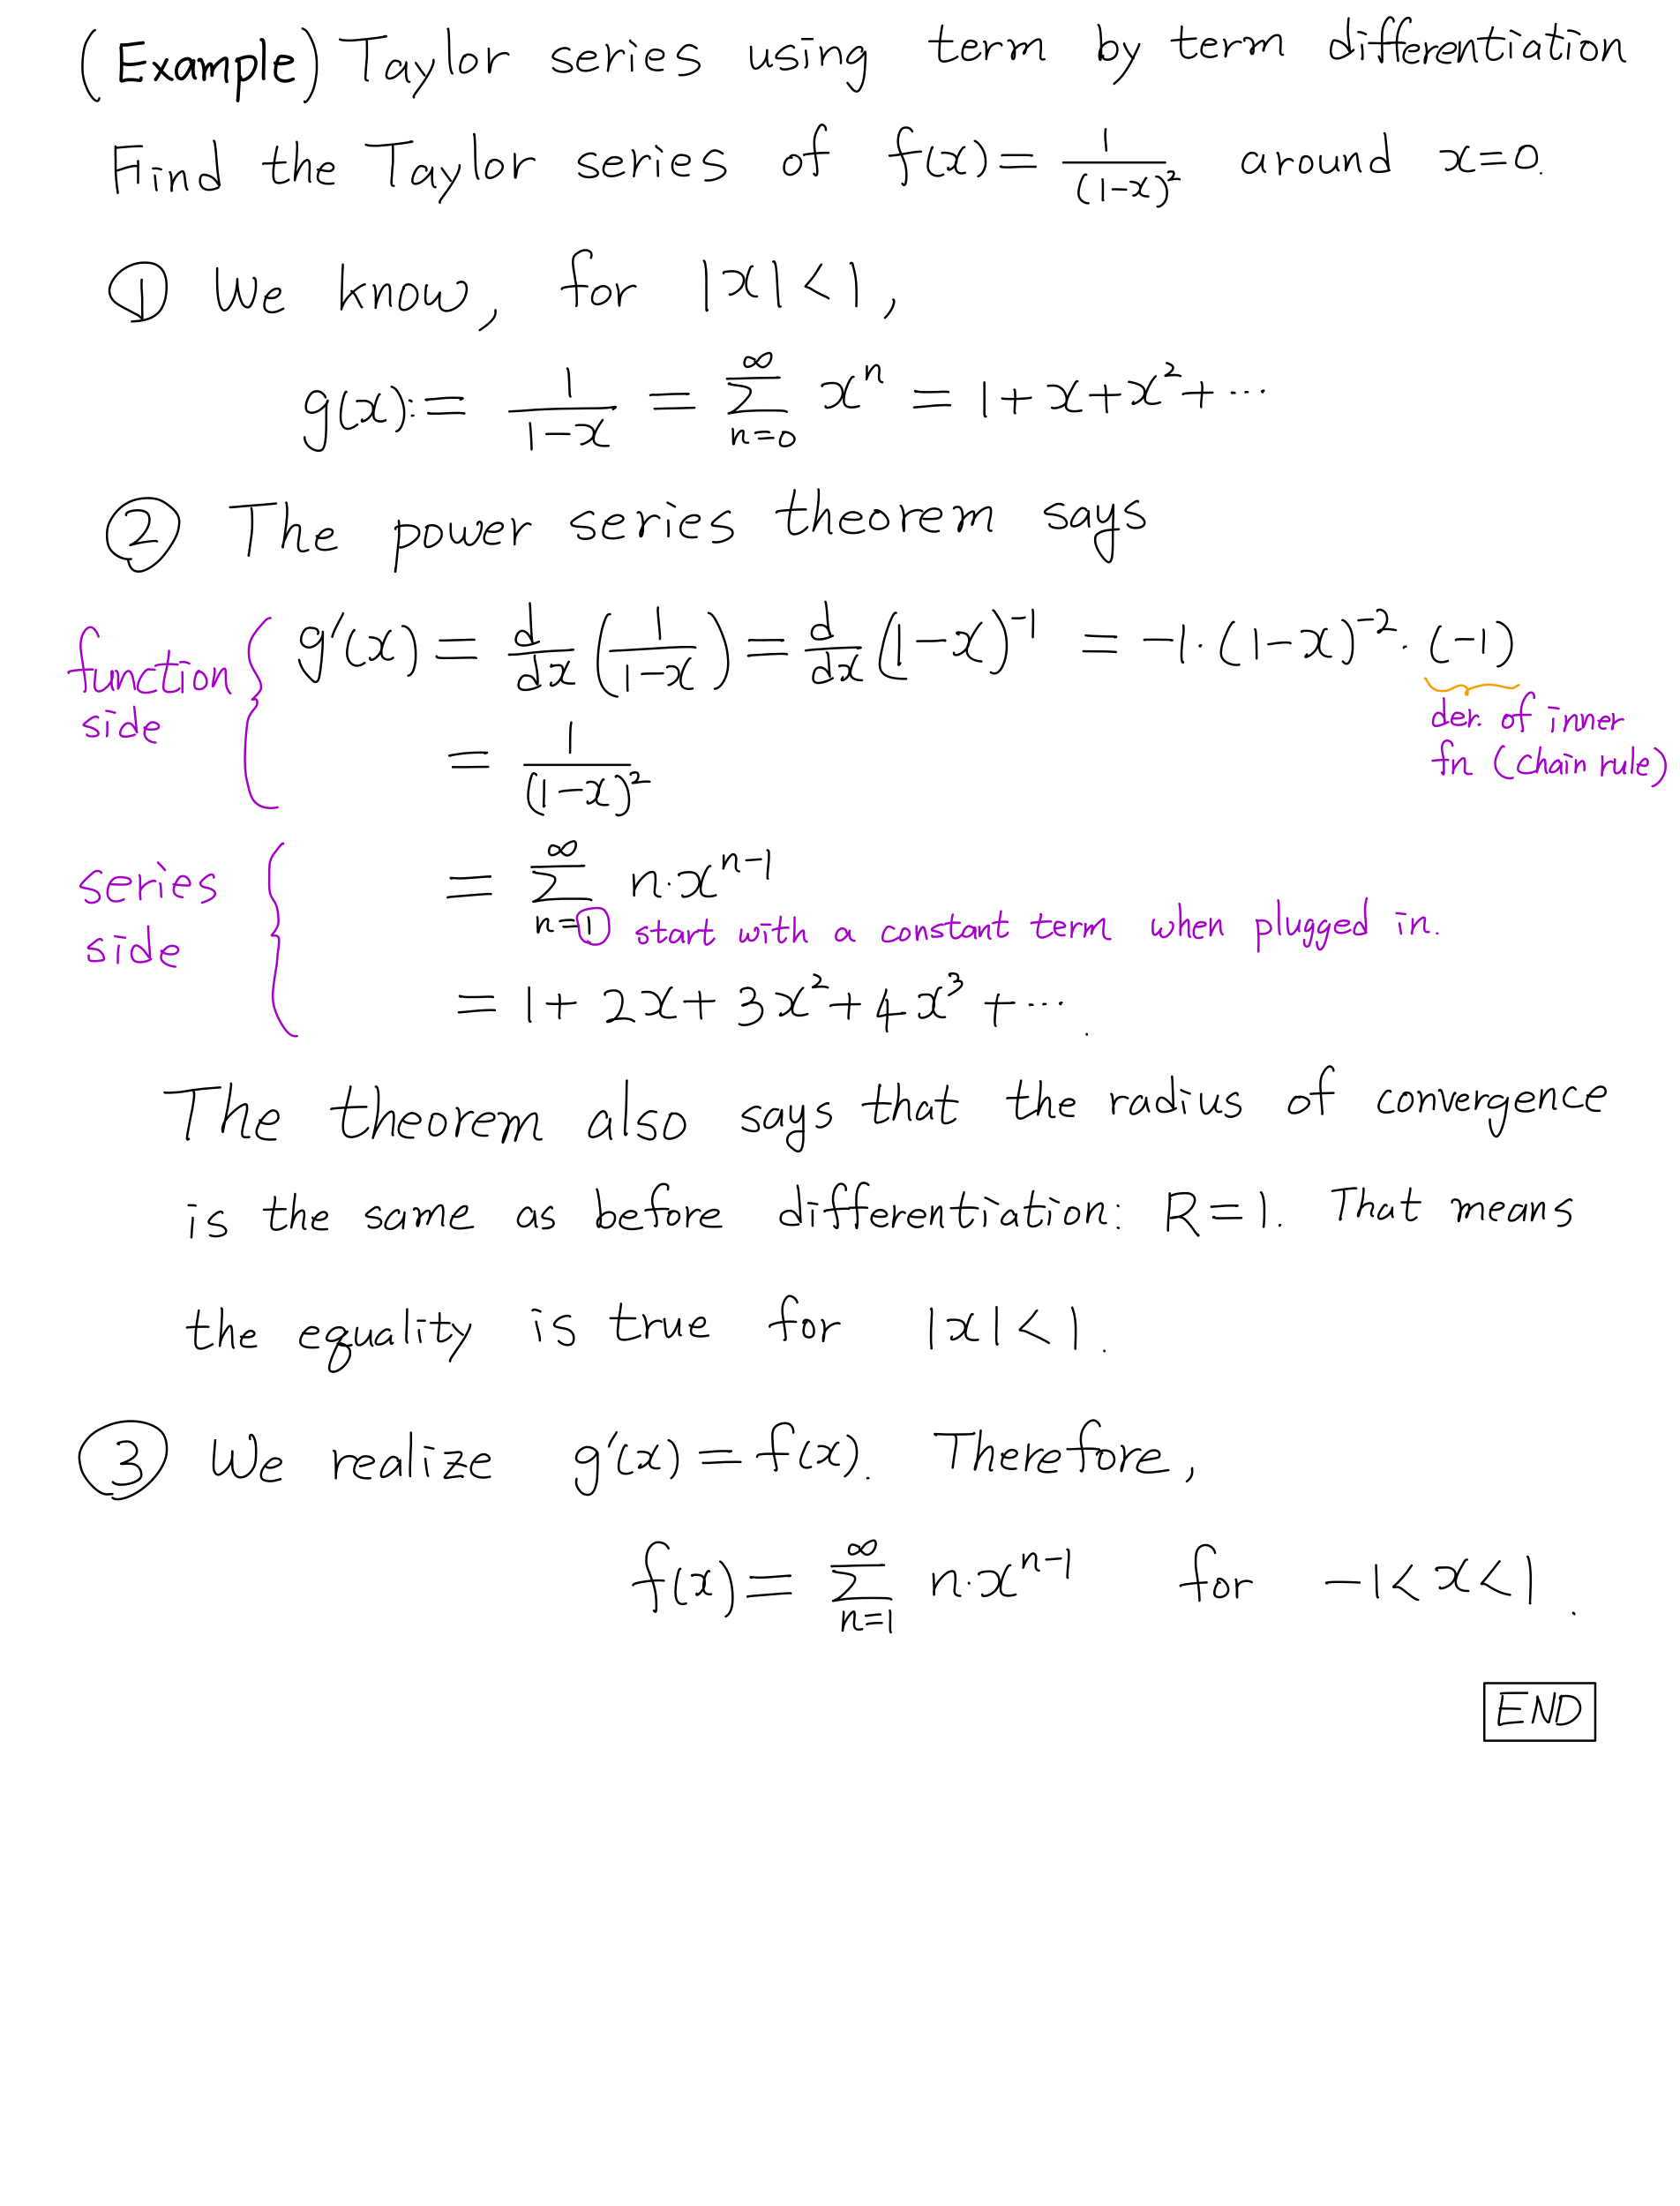 (Example) Taylor series using term by term differentiation
Find the Taylor series of f(x) = 1/(1-x)² around x=0.
① We know, for |x|<1,
g(x) := 1/(1-x) = ∑_{n=0}^{∞} xⁿ = 1+x+x²+⋯
② The power series theorem says
function side { g'(x) = d/dx (1/(1-x)) = d/dx (1-x)⁻¹ = -1·(1-x)⁻²·(-1)
der. of inner
fn (chain rule)
= 1/(1-x)²
series side { = ∑_{n=1}^{∞} n·xⁿ⁻¹
start with a constant term when plugged in.
= 1+2x+3x²+4x³+⋯.
The theorem also says that the radius of convergence
is the same as before differentiation: R=1. That means
the equality is true for |x|<1.
③ We realize g'(x) = f(x). Therefore,
f(x) = ∑_{n=1}^{∞} n·xⁿ⁻¹ for -1<x<1.
END